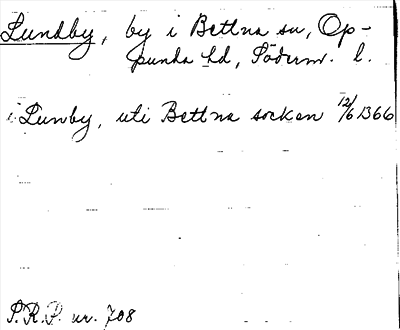 Lundby, by i Bettna sn, Op-
punda hd, Söderm. l.
i Lunby, uti Bettna socken 12/6 1366
S.R.P. nr. 708